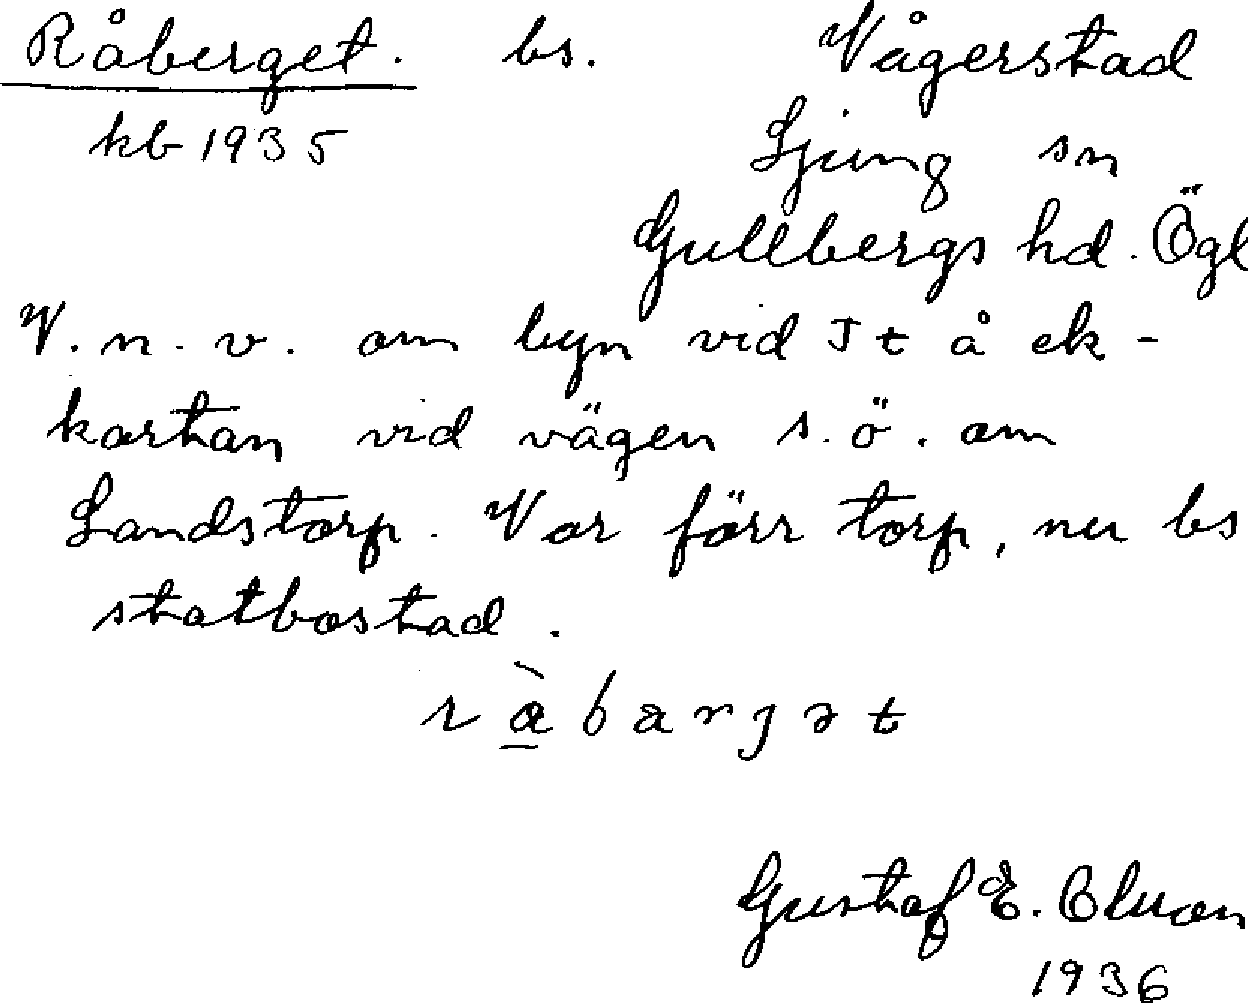 Råberget. bs. Vågerstad
kb 1935 Ljung sn
Gullbergs hd. Ögl
V. n. v. om byn vid J t å ek-
kartan vid vägen s. ö. om
Landstorp. Var förr torp, nu bs
statbostad.
Gustaf E.
1936